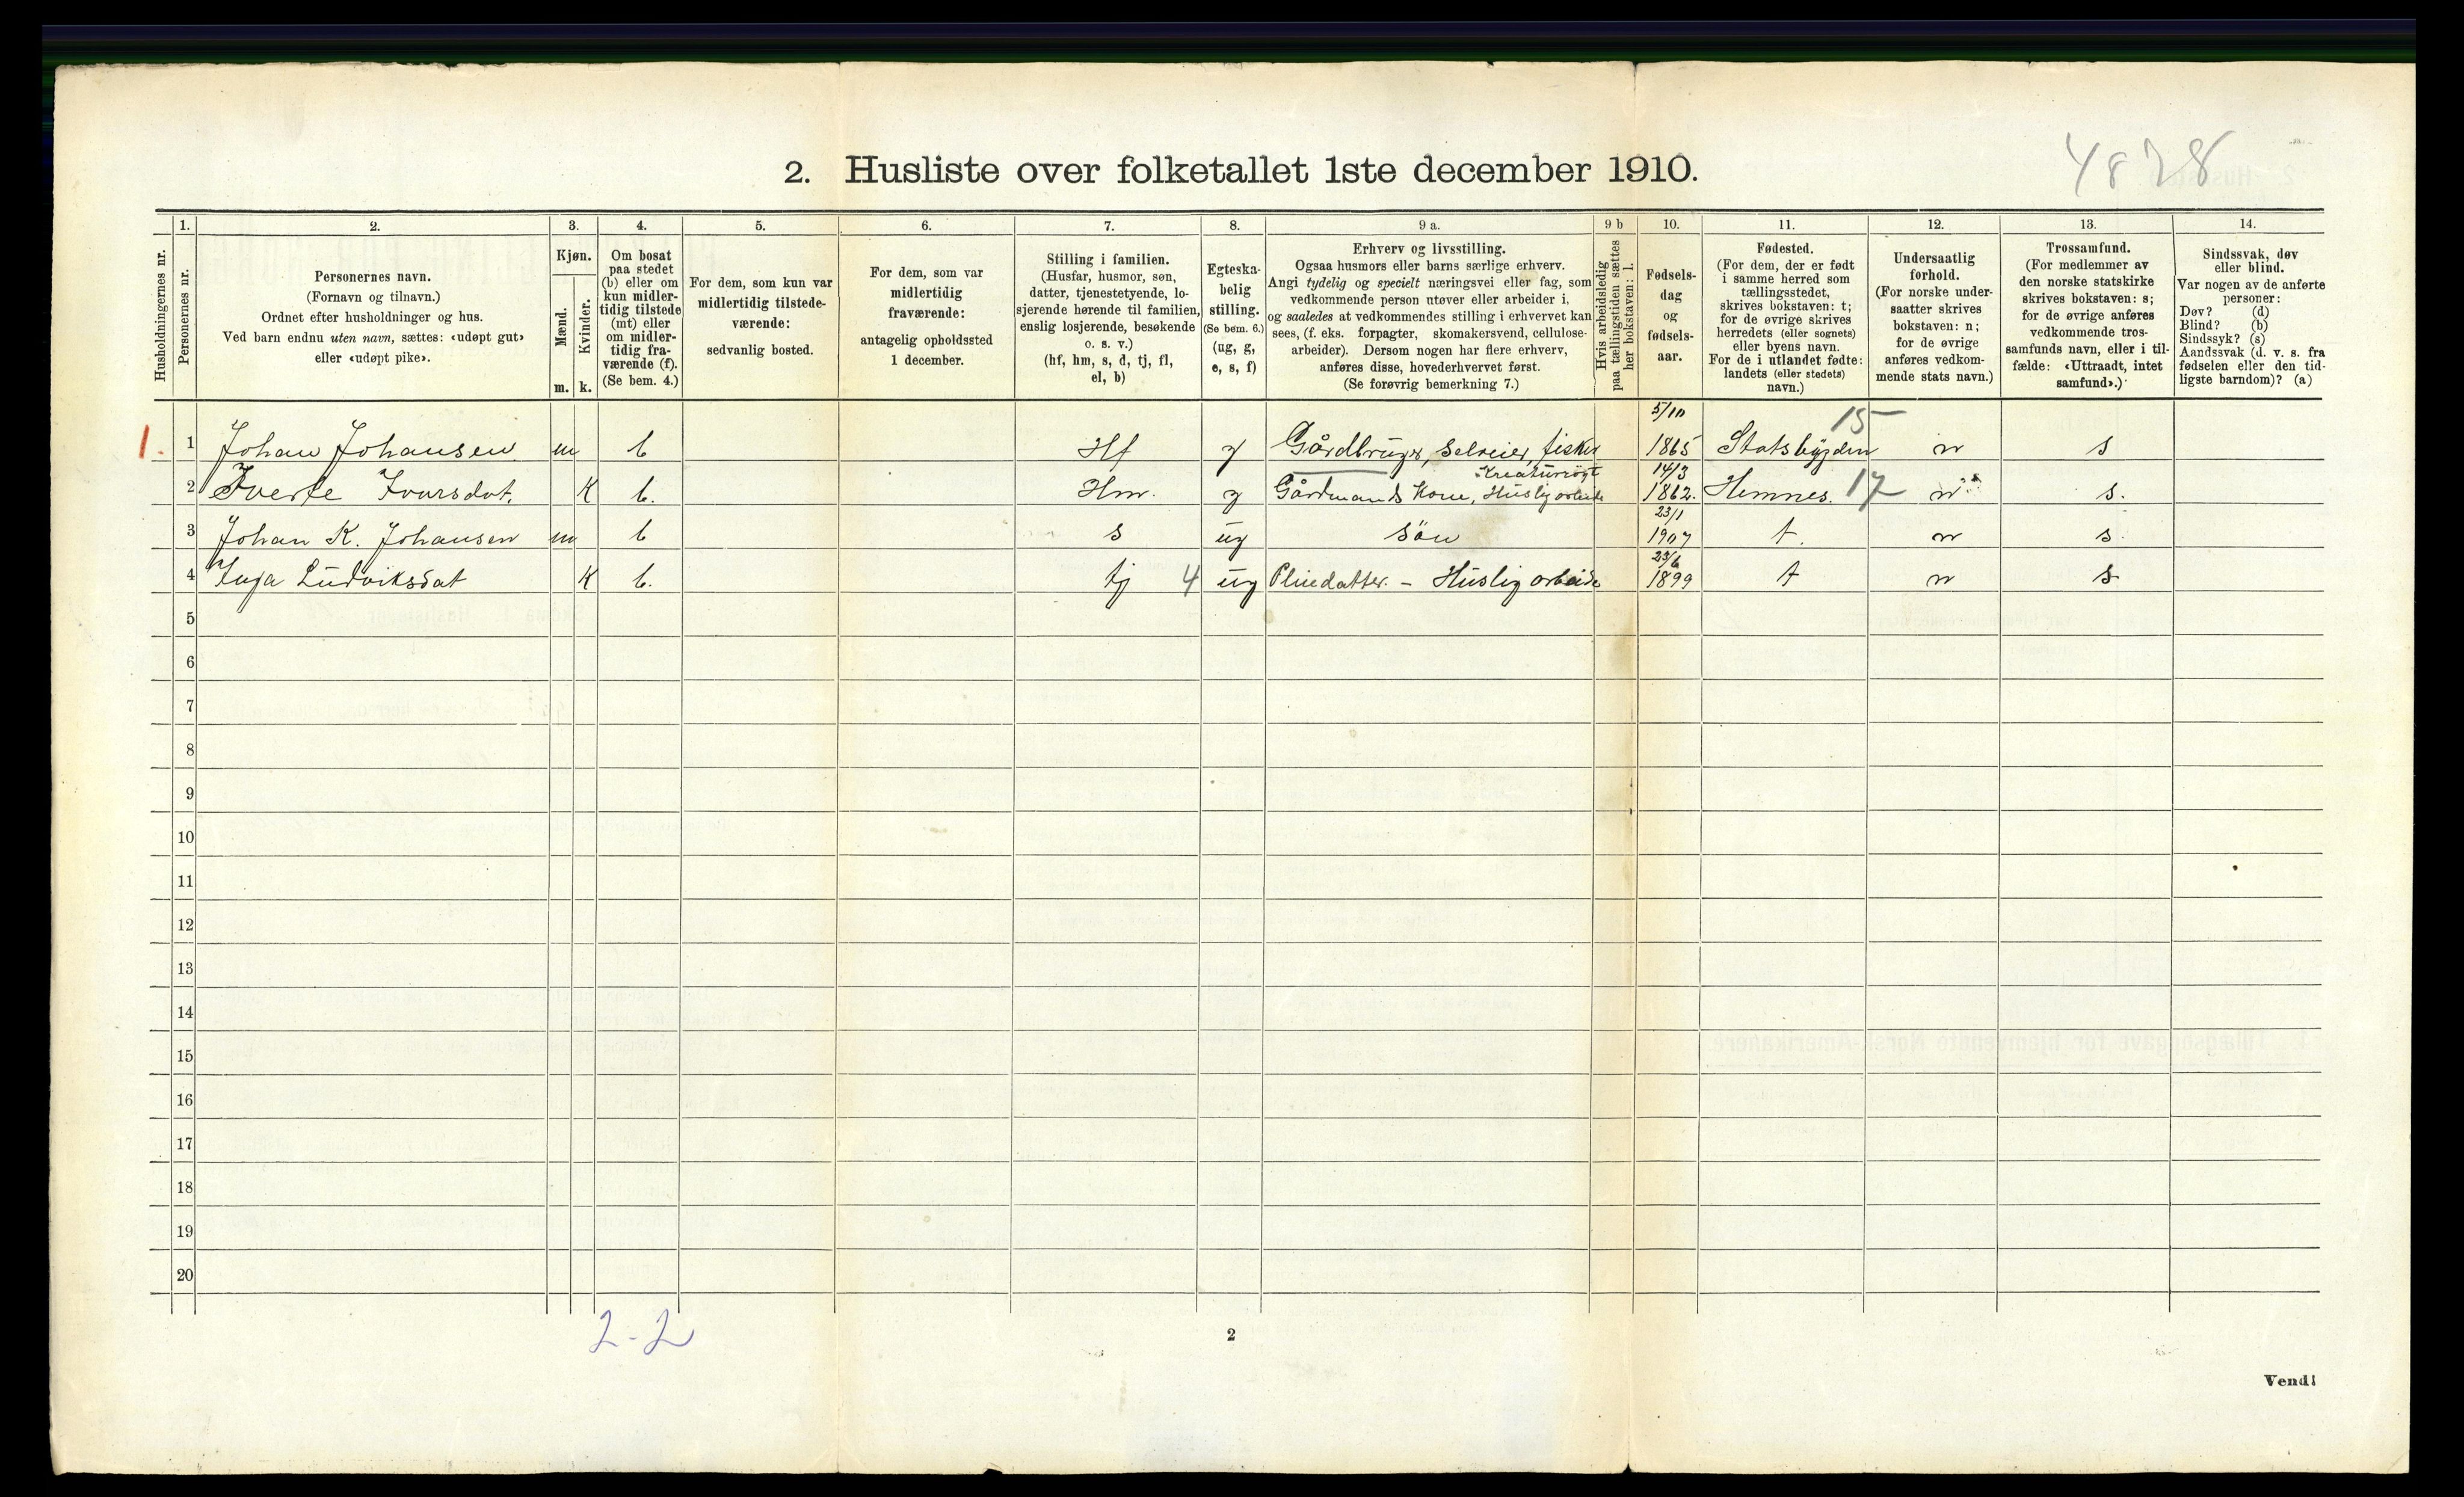 4878
2. Husliste over folketallet 1ste december 1910.
Husholdningernes nr.
1.
Personernes nr.
2.
Personernes navn.
(Fornavn og tilnavn.)
Ordnet efter husholdninger og hus.
Ved barn endnu uten navn, sættes: «udøpt gut»
eller «udøpt pike».
3.
Kjøn.
Mænd.
Kvinder.
m. k.
4.
Om bosat
paa stedet
(b) eller om
kun midler-
tidig tilstede
(mt) eller
om midler-
tidig fra-
værende (f).
(Se bem. 4.)
5.
For dem, som kun var
midlertidig tilstede-
værende:
sedvanlig bosted.
6.
For dem, som var
midlertidig
fraværende:
antagelig opholdssted
1 december.
7.
Stilling i familien.
(Husfar, husmor, søn,
datter, tjenestetyende, lo-
sjerende hørende til familien,
enslig losjerende, besøkende
o. s. v.)
(hf, hm, s, d, tj, fl,
el, b)
8.
Egteska-
belig
stilling.
(Se bem. 6.)
(ug, g,
e, s, f)
9 a.
Erhverv og livsstilling.
Ogsaa husmors eller barns særlige erhverv.
Angi tydelig og specielt næringsvei eller fag, som
vedkommende person utøver eller arbeider i,
og saaledes at vedkommendes stilling i erhvervet kan
sees, (f. eks. forpagter, skomakersvend, cellulose-
arbeider). Dersom nogen har flere erhverv,
anføres disse, hovederhvervet først.
(Se forøvrig bemerkning 7.)
9 b
Hvis arbeidsledig
paa tællingstiden sættes
her bokstaven: l.
10.
Fødsels-
dag
og
fødsels-
aar.
11.
Fødested.
(For dem, der er født
i samme herred som
tællingsstedet,
skrives bokstaven: t;
for de øvrige skrives
herredets (eller sognets)
eller byens navn.
For de i utlandet fødte:
landets (eller stedets)
navn.)
12.
Undersaatlig
forhold.
(For norske under-
saatter skrives
bokstaven: n;
for de øvrige
anføres vedkom-
mende stats navn.)
13.
Trossamfund.
(For medlemmer av
den norske statskirke
skrives bokstaven: s;
for de øvrige anføres
vedkommende tros-
samfunds navn, eller i til-
fælde: «Uttraadt, intet
samfund».)
14.
Sindssvak, døv
eller blind.
Var nogen av de anførte
personer:
Døv? (d)
Blind? (b)
Sindssyk? (s)
Aandssvak (d. v. s. fra
fødselen eller den tid-
ligste barndom)? (a)
5/10 15
1. 1 Johan Johansen m b Hf g Gårdbruger, Selveier, fisker 1865 Statsbygden n s
Kreaturrøgt 14/3
2 Iverte Ivarsdat. K b. Hm. g Gårdmands Kone, Huslig arbeide 1862. Hemnes. 17 n s.
23/1
3 Johan K. Johansen m b s ug søn 1907 t. n s.
23/6
4 Inga Ludviksdat K b. tj 4 ug Pliedatter. - Huslig arbeide 1899 t n s
5
6
7
8
9
10
11
12
13
14
15
16
17
18
19
20
2-2
2
Vend!